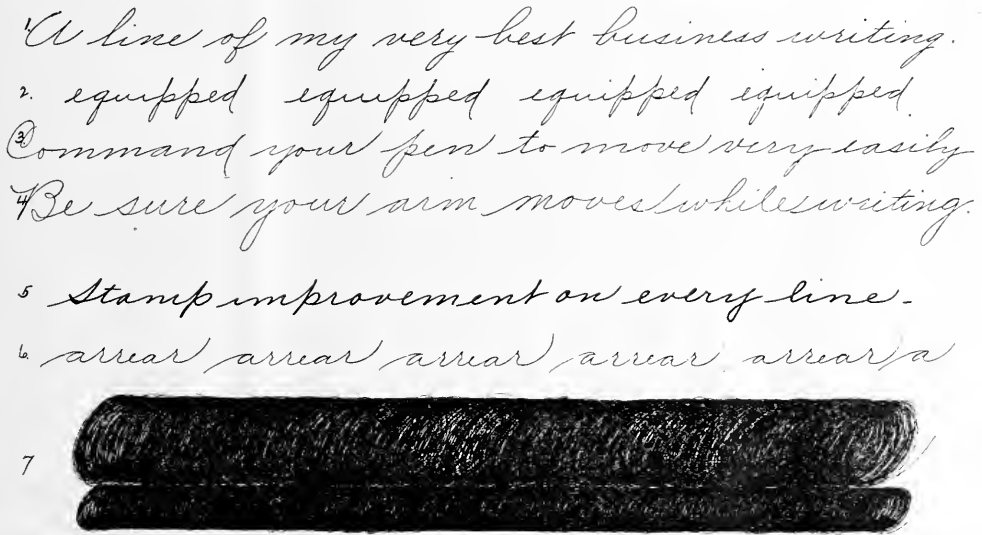 1. A line of my very best business writing.
2. equipped equipped equipped equipped
3. Command your pen to move very easily
4 Be sure your arm moves while writing.
5 Stamp improvement on every line.
6. arrear arrear arrear arrear arrear a
7